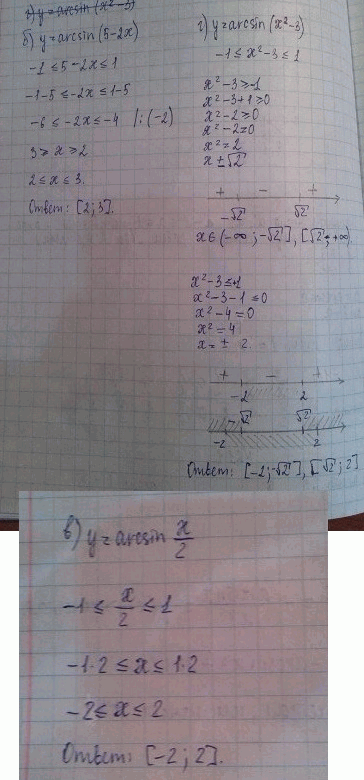 г) y=arcsin (x²-3)
б) y=arcsin (5-2x)
-1 ≤ 5-2x ≤ 1
-1-5 ≤ -2x ≤ 1-5
-6 ≤ -2x ≤ -4 /: (-2)
3 ≥ x ≥ 2
2 ≤ x ≤ 3.
Ответ: [2; 3].
г) y=arcsin (x²-3)
-1 ≤ x²-3 ≤ 1
x²-3 ≥ -1
x²-3+1 ≥ 0
x²-2 ≥ 0
x²-2=0
x²=2
x ±√2
+ - +
-√2 √2
x∈(-∞; -√2], [√2; +∞)
x²-3 ≤ 1
x²-3-1 ≤ 0
x²-4=0
x²=4
x= ± 2
+ - +
-2 2
-√2 √2
-2 2
Ответ: [-2; -√2], [√2; 2]
в) y=arcsin x/2
-1 ≤ x/2 ≤ 1
-1·2 ≤ x ≤ 1·2
-2 ≤ x ≤ 2
Ответ: [-2; 2].